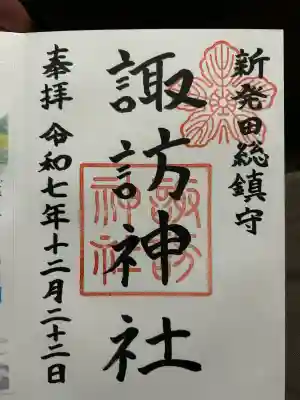 新発田総鎮守
諏訪神社
諏訪
神社
奉拝 令和七年十二月二十二日